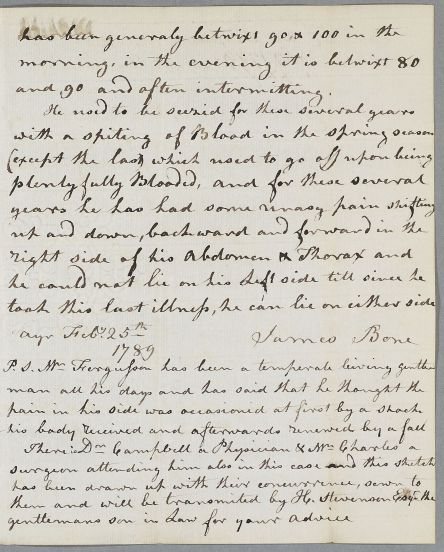 has been generaly betwixt 90 & 100 in the
morning, in the evening it is betwixt 80
and 90 and often intermitting.
He used to be seezid for these several years
with a spiting of Blood in the spring season
(except the last) which used to go off upon being
plentyfully Blooded, and for these several
years he has had some unasy pain shifting
up and down, backward and forward in the
right side of his Abdomen & Thorax and
he could not lie on his left side till since he
took this last illness, he can lie on either side
ayr Feby. 25th
1789
James Bone
P.S. Mr. Fergusson has been a temperate living gentle
man all his days and has said that he thought the
pain in his side was occasioned at first by a shock
his body received and afterwards renewed by a fall
There is Dr. Campbell a Physician & Mr. Charles a
surgeon attending him also in this case and this sketch
has been drawn up with their concurrence, sewn to
them and will be transmited by H. Stevenson Esqr. the
gentlemans son in Law for your advice